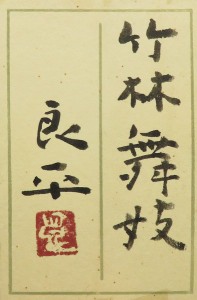 竹林舞妓
良平